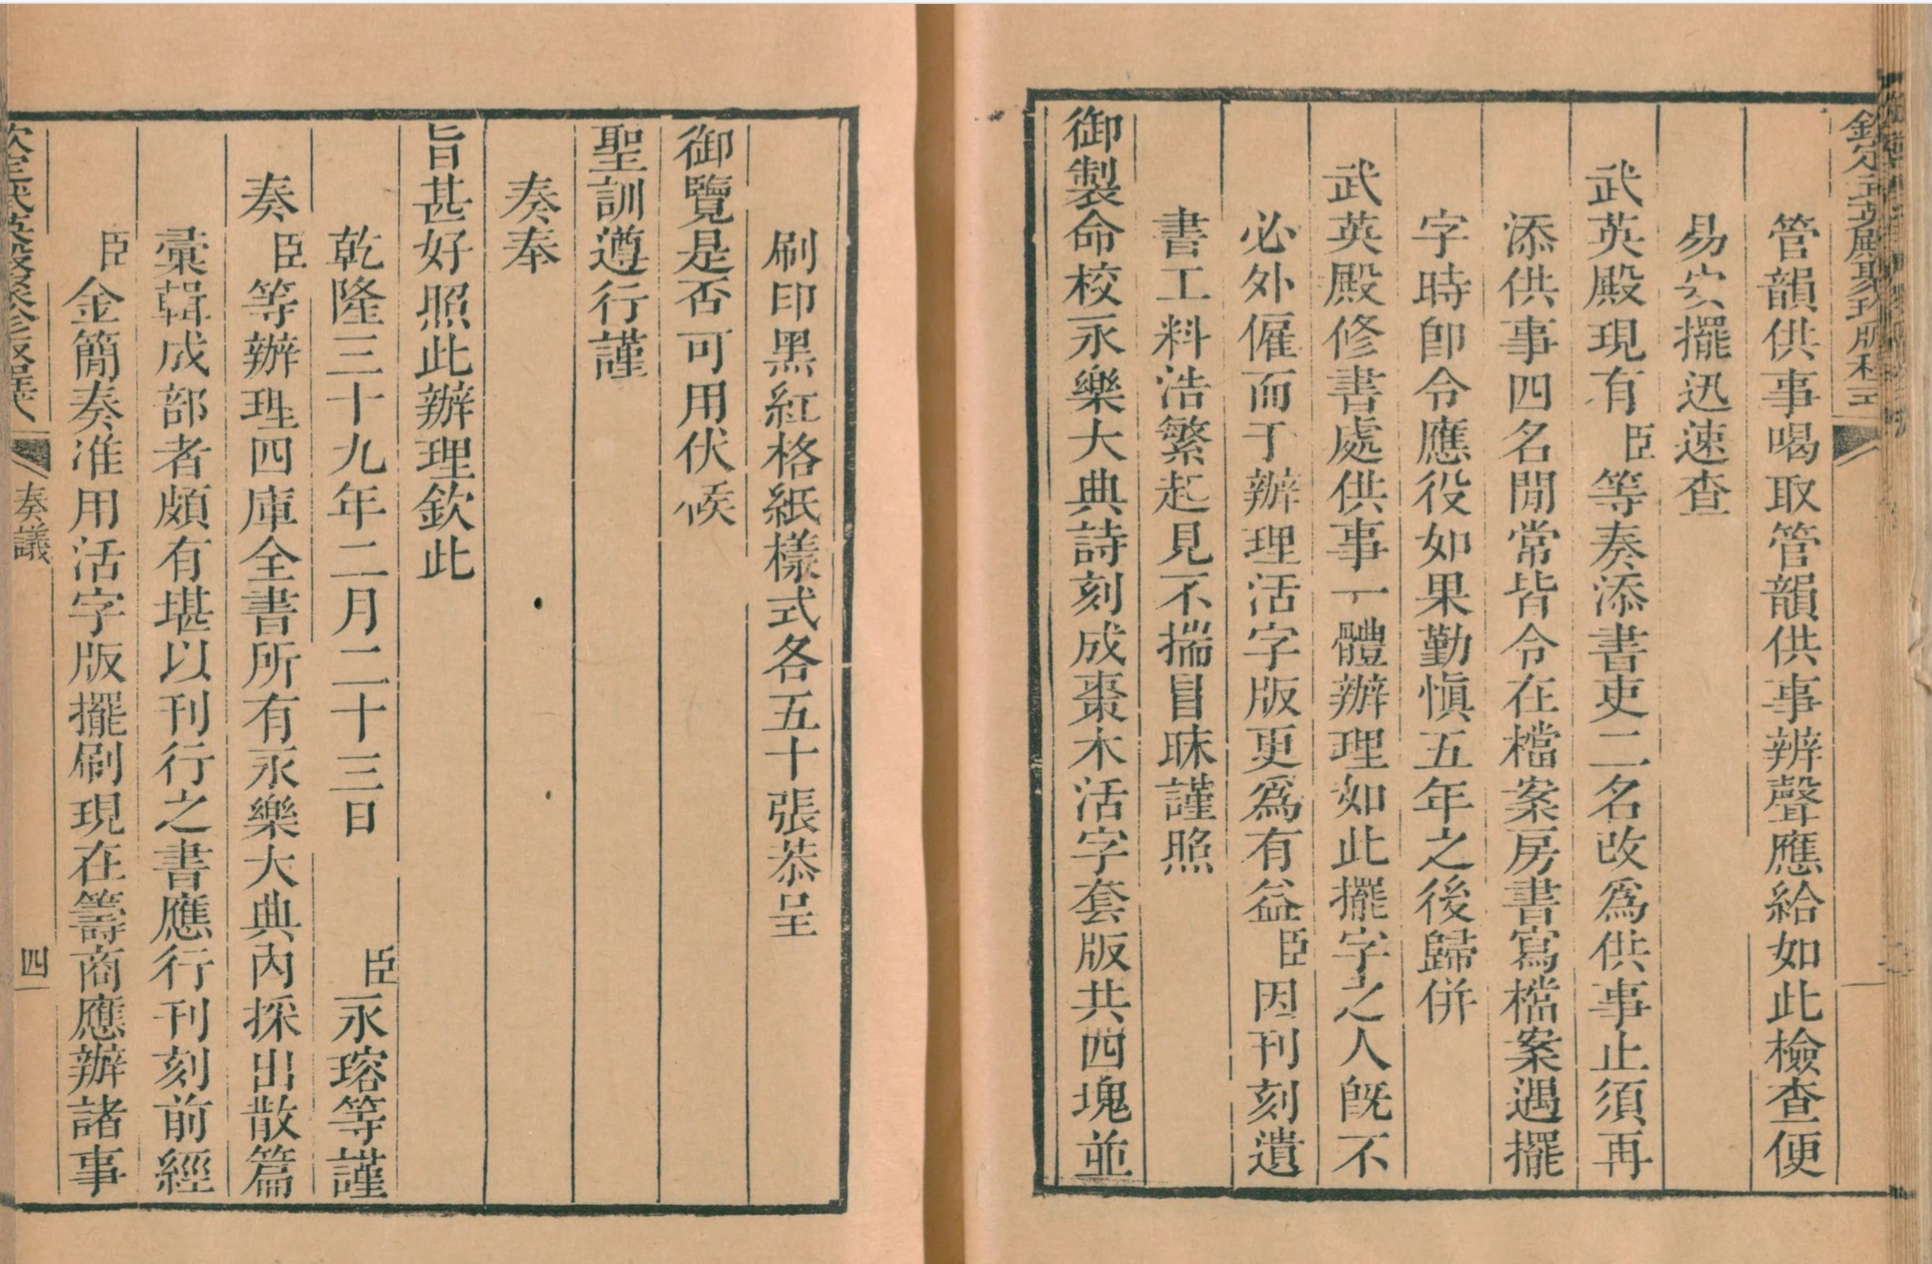 欽定武英殿聚珍版程式
管韻供事喝取管韻供事辨聲應給如此檢查便
易安擺迅速查
武英殿現有臣等奏添書吏二名改爲供事止須再
添供事四名閒常皆令在檔案房書寫檔案遇擺
字時卽令應役如果勤愼五年之後歸併
武英殿修書處供事一體辦理如此擺字之人旣不
必外僱而于辦理活字版更爲有益臣因刊刻遺
書工料浩繁起見不揣冒昧謹照
御製命校永樂大典詩刻成棗木活字套版共四塊並
刷印黑紅格紙樣式各五十張恭呈
御覽是否可用伏候
聖訓遵行謹
奏奉
旨甚好照此辦理欽此
乾隆三十九年二月二十三日 臣永瑢等謹
奏臣等辦理四庫全書所有永樂大典內採出散篇
彙輯成部者頗有堪以刊行之書應行刊刻前經
臣金簡奏准用活字版擺刷現在籌商應辦諸事
欽定武英殿聚珍版程式 奏議 四